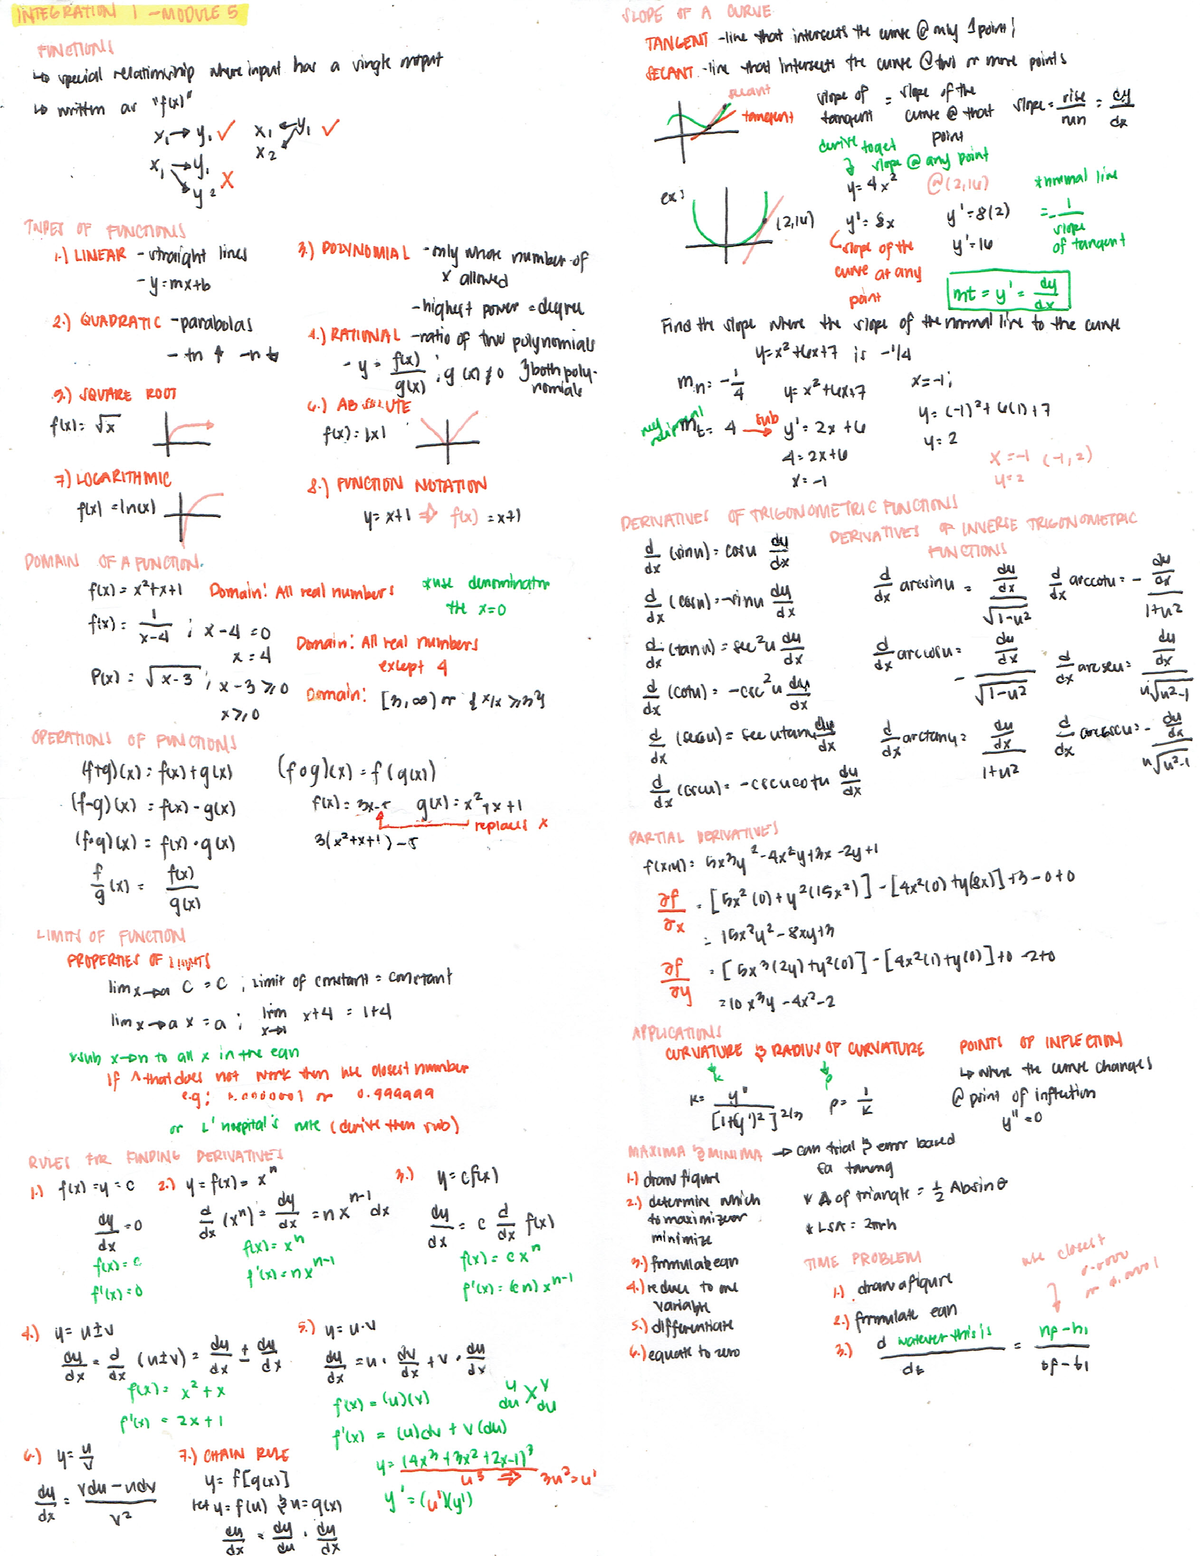 INTEGRATION 1 - MODULE 5
FUNCTIONS
↳ special relationship where input has a single output
↳ written as "f(x)"
x₁ → y₁ ✓ x₁ → y₁ ✓
x₂
x₁ → y₁
y₂ X
TYPES OF FUNCTIONS
1.) LINEAR - straight lines
- y=mx+b
2.) QUADRATIC - parabolas
- +n ↑ -n ↓
3.) POLYNOMIAL - only whole number of
x allowed
- highest power = degree
4.) RATIONAL - ratio of two polynomials
- y = f(x)/g(x) ; g(x)≠0 } both poly-
nomials
5.) SQUARE ROOT
f(x) = √x
6.) ABSOLUTE
f(x) = |x|
7) LOGARITHMIC
f(x) = ln(x)
8.) FUNCTION NOTATION
y= x+1 ⇒ f(x) = x+1
DOMAIN OF A FUNCTION.
f(x) = x²+x+1 Domain: All real numbers *use denominator
the x=0
f(x) = 1/x-4 ; x-4 = 0
x = 4
Domain: All real numbers
except 4
P(x) = √x-3 ; x-3 ≥0
x≥0
Domain: [3,∞) or {x|x ≥3}
OPERATIONS OF FUNCTIONS
(f+g)(x) = f(x)+g(x)
(f-g)(x) = f(x)-g(x)
(f•g)(x) = f(x)•g(x)
f/g (x) = f(x)/g(x)
(fog)(x) = f(g(x))
f(x) = 3x-5 g(x) = x²+x+1
replaces x
3(x²+x+1)-5
LIMITS OF FUNCTION
PROPERTIES OF LIMITS
lim x→a C = C ; Limit of constant = constant
lim x→a x = a ; lim x→1 x+4 = 1+4
*sub x→n to all x in the eqn
If ^that does not work then use closest number
e.g: 1.0000001 or 0.999999
or L'hospital's rule (derive then sub)
RULES FOR FINDING DERIVATIVES
1.) f(x) = y = c
dy/dx = 0
f(x) = c
f'(x) = 0
2.) y = f(x) = xⁿ
d/dx (xⁿ) = dy/dx = nxⁿ⁻¹ dx
f(x) = xⁿ
f'(x) = nxⁿ⁻¹
3.) y = cf(x)
dy/dx = c d/dx f(x)
f(x) = cxⁿ
f'(x) = (cn)xⁿ⁻¹
4.) y= u±v
dy/dx = d/dx (u±v) = du/dx ± dy/dx
f(x) = x²+x
f'(x) = 2x+1
5.) y= u·v
dy/dx = u · dv/dx + v · du/dx
f(x) = (u)(v) u X v
du dv
f'(x) = (u)dv + v(du)
6.) y= u/v
dy/dx = vdu-udv/v²
7.) CHAIN RULE
y= f[g(x)]
let y=f(u) & u=g(x)
dy/dx = dy/du · du/dx
y= (4x³+3x²+2x-1)³
u³ ⇒ 3u²=u'
y'=(u')(y')
SLOPE OF A CURVE
TANGENT - line that intersects the curve @ only 1 point;
SECANT - line that intersects the curve @ two or more points
secant
tangent
slope of tangent = slope of the curve @ that point
slope = rise/run = dy/dx
derive to get
slope @ any point
ex:
(2,16)
y= 4x² @(2,16)
y'= 8x y'=8(2)
y'=16
slope of the
curve at any
point
*normal line
= - 1/slope of tangent
mt = y' = dy/dx
Find the slope where the slope of the normal line to the curve
y=x²+6x+7 is -1/4
mn= -1/4 y= x²+6x+7 x=-1;
neg reciprocal mt= 4 sub → y'= 2x+6
4= 2x+6
x= -1
y= (-1)²+6(1)+7
y= 2
x=-1 (-1,2)
y=2
DERIVATIVES OF TRIGONOMETRIC FUNCTIONS
d/dx (sinu) = cosu du/dx
d/dx (cosu) = -sinu du/dx
d/dx (tanu) = sec²u du/dx
d/dx (cotu) = -csc²u du/dx
d/dx (secu) = secutanu du/dx
d/dx (cscu) = -cscucotu du/dx
DERIVATIVES OF INVERSE TRIGONOMETRIC
FUNCTIONS
d/dx arcsinu = du/dx/√1-u²
d/dx arccosu = - du/dx/√1-u²
d/dx arctanu = du/dx/1+u²
d/dx arccotu = - du/dx/1+u²
d/dx arcsecu = du/dx/u√u²-1
d/dx arccscu = - du/dx/u√u²-1
PARTIAL DERIVATIVES
f(x,y) = 5x³y²-4x²y+3x-2y+1
∂f/∂x = [5x²(0)+y²(15x²)]-[4x²(0)+y(8x)]+3-0+0
= 15x²y²-8xy+3
∂f/∂y = [5x³(2y)+y²(0)]-[4x²(1)+y(0)]+0-2+0
= 10x³y-4x²-2
APPLICATIONS
CURVATURE & RADIUS OF CURVATURE
k ρ
k= y''/[1+(y')²]2/3 ρ= 1/k
POINTS OF INFLECTION
↳ where the curve changes
@ point of inflection
y''=0
MAXIMA & MINIMA → can trial & error based
sa tanong
1.) draw figure
2.) determine which
to maximize or
minimize
3.) formulate eqn
4.) reduce to one
variable
5.) differentiate
6.) equate to zero
* A of triangle = ½ Absinθ
* LSA = 2πrh
TIME PROBLEM
1.) draw a figure
2.) formulate eqn
3.) d watever this is/dt = nf-ni/tf-ti
use closest